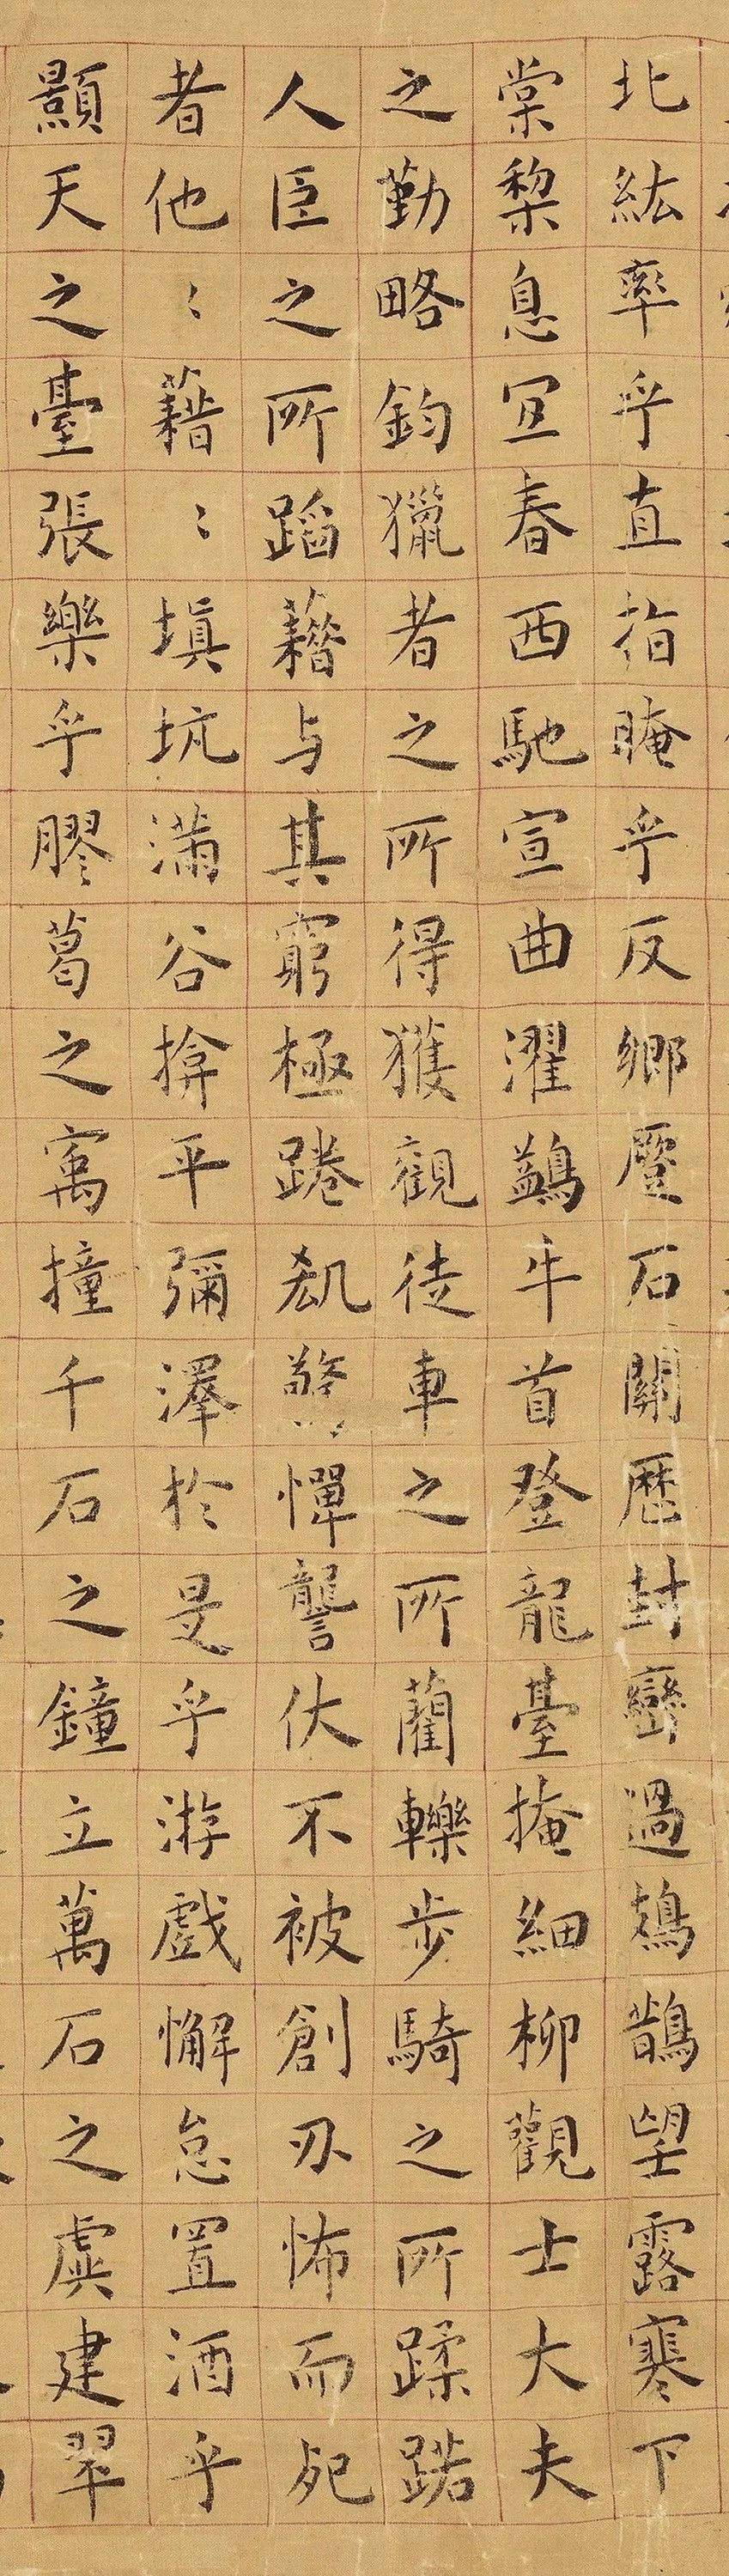 北紘率乎直指晻乎反鄉蹷石關歷封巒過鳷鵲望露寒下
棠梨息宜春西馳宣曲濯鷁牛首登龍臺掩細柳觀士大夫
之勤略鈞獵者之所得獲觀徒車之所藺轢步騎之所蹂踖
人臣之所蹈藉与其窮極踡㕁驚憚讋伏不被創刃怖而死
者他〻藉〻填坑滿谷揜平彌澤於是乎游戲懈怠置酒乎
顥天之臺張樂乎膠葛之寓撞千石之鐘立萬石之虡建翠